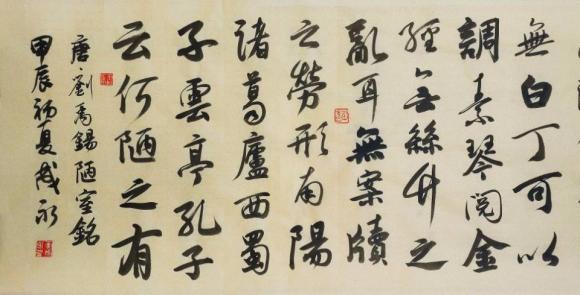 無白丁可以
調素琴閱金
經無絲竹之
亂耳無案牘
之勞形南陽
諸葛廬西蜀
子雲亭孔子
云何陋之有
唐·劉禹錫陋室銘
甲辰初夏